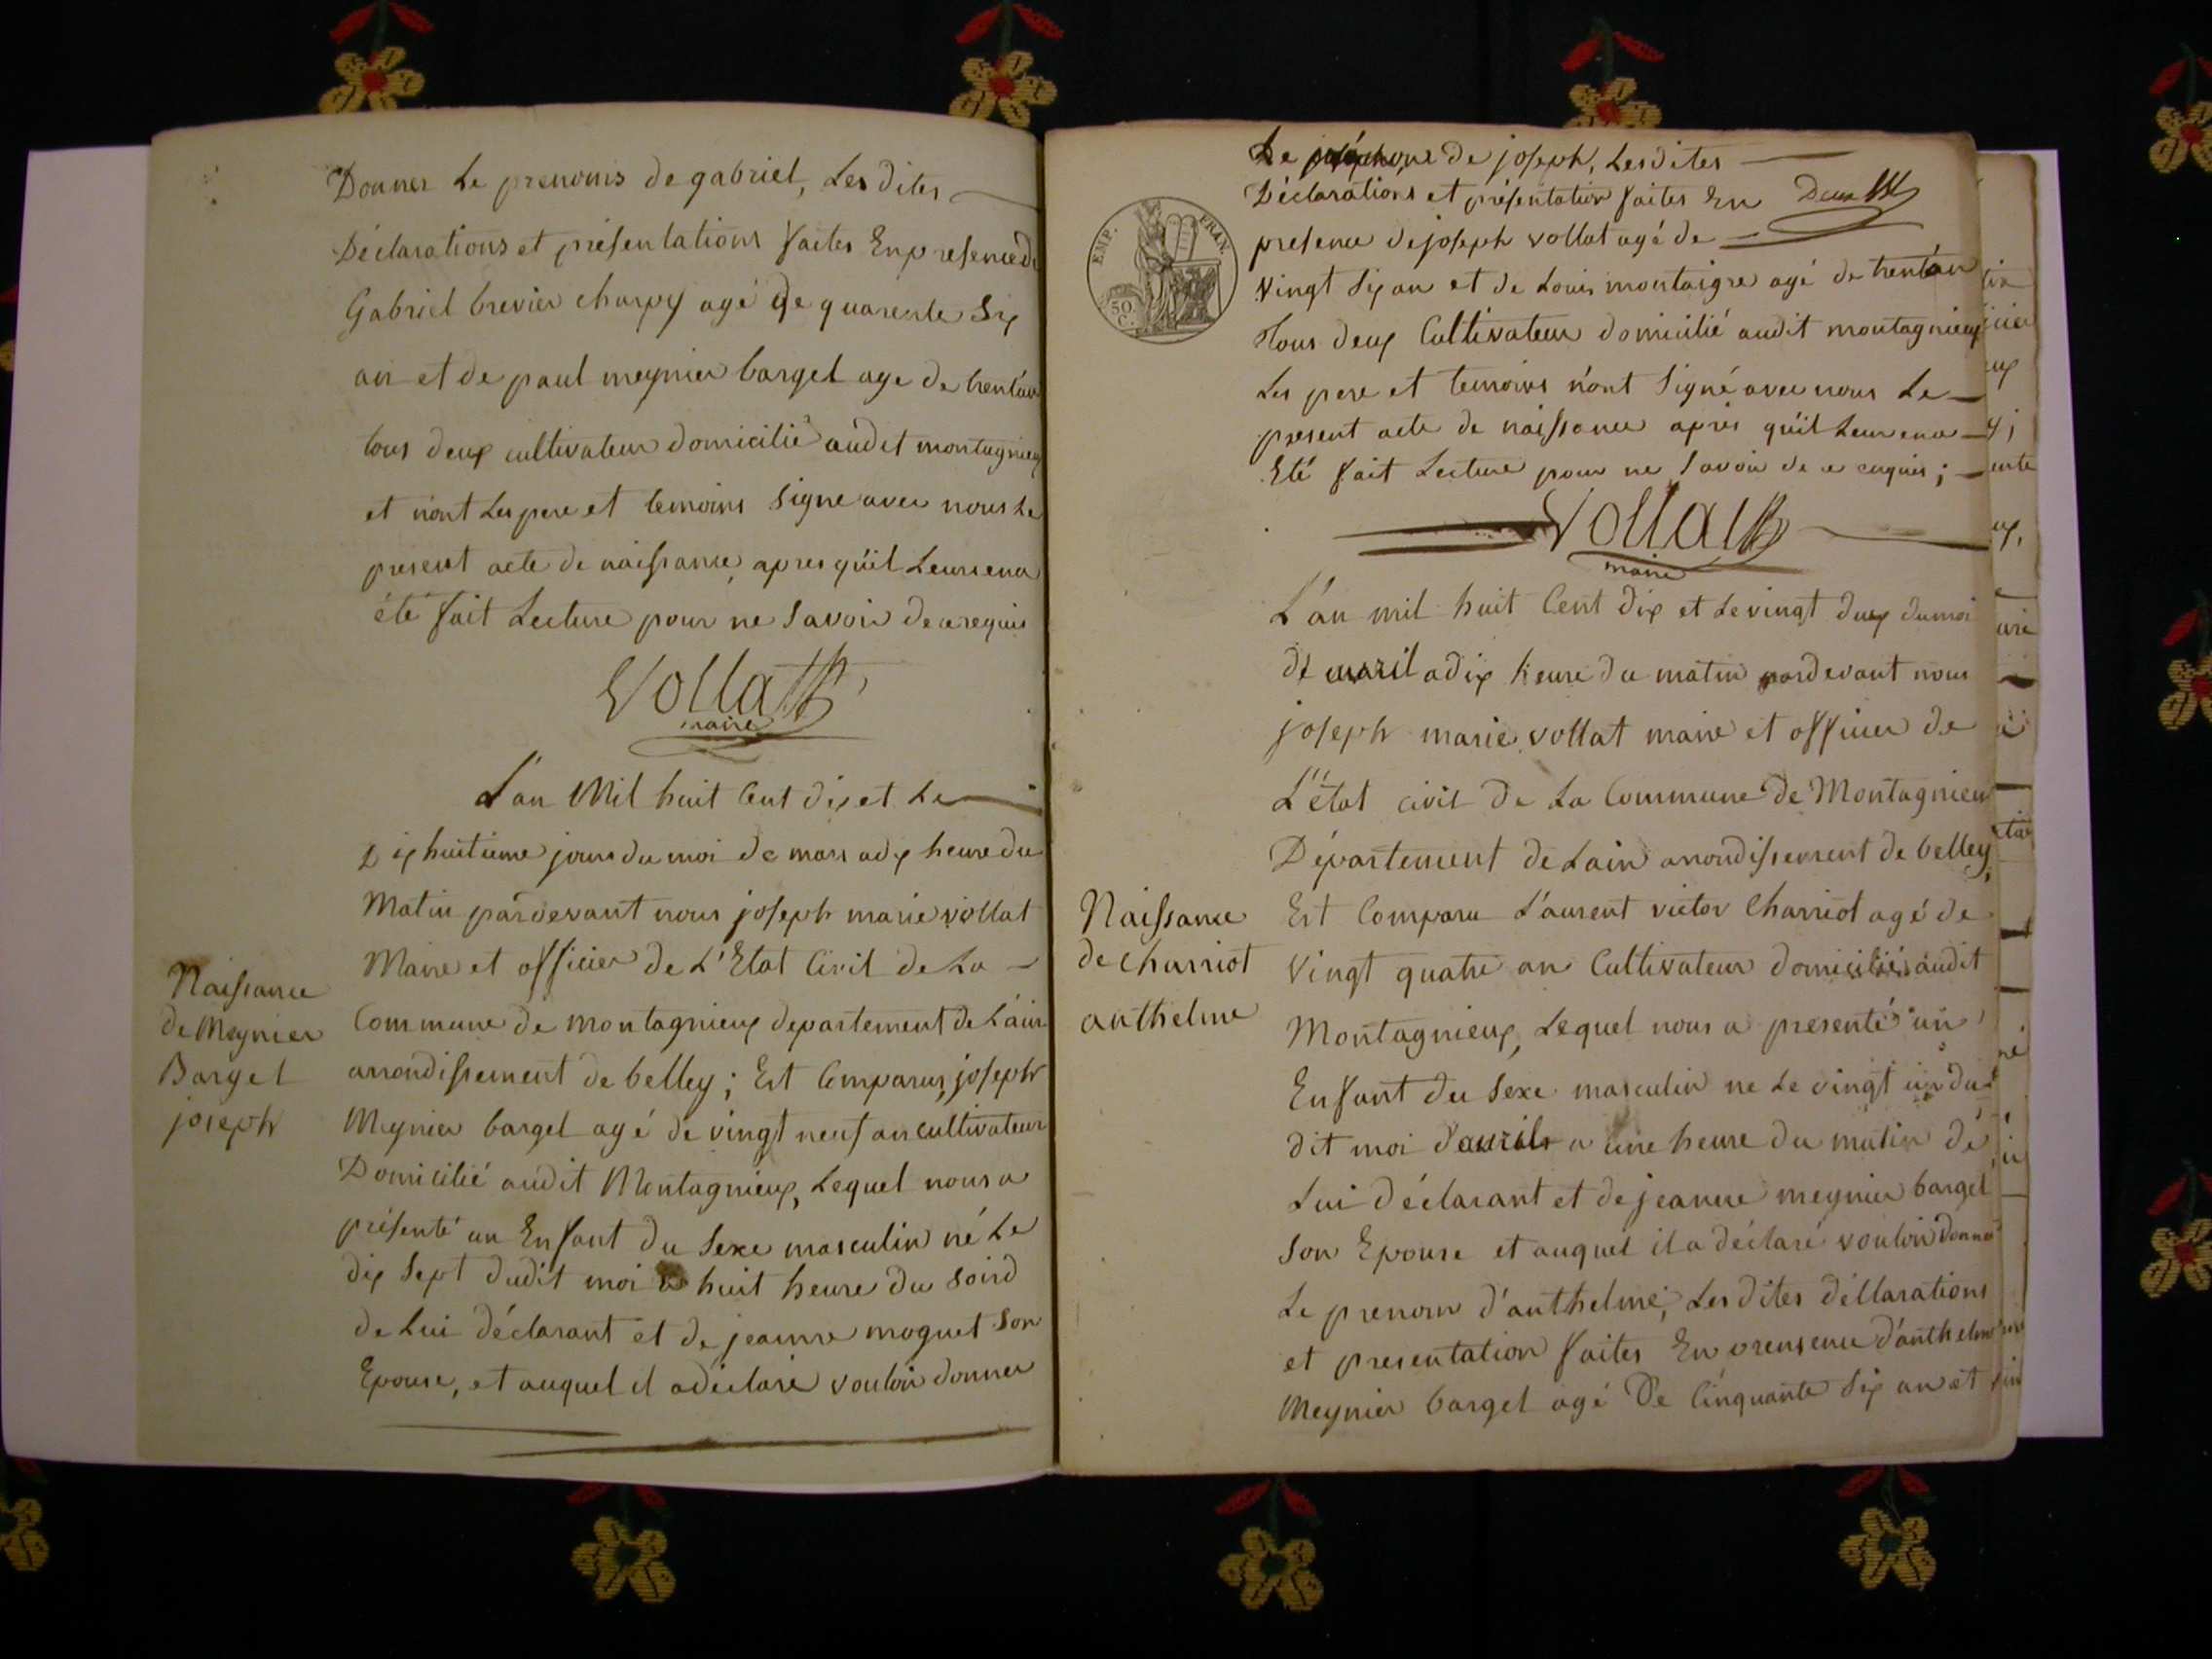 Donner Le prenoms de gabriel, Les dites
Déclarations et présentations faites En presence de
Gabriel brevier charpy agé de quarente Six
an et de paul meynier barget age de trent'an
tous deux cultivateur domicilié audit montagnieux
et n'ont Les pere et temoins Signe avec nous Le
present acte de naissance, apres qu'il Leurs en a
été fait Lecture pour ne Savoir de ce requis
Vollat
maire
L'an Mil huit Cent dix et Le
Dix huitieme jours du moi de mars a dix heure du
Matin pardevant nous joseph marie vollat
Maire et officier de L'Etat Civil de La
Naissance
de Meynier
Barget
joseph
Commune de montagnieux departement de L'ain
arrondissement de belley; Est Comparus, joseph
Meynier barget agé de vingt neuf an cultivateur
Domicilié audit Montagnieux, Lequel nous a
présenté un Enfant du Sexe masculin né Le
dix Sept dudit moi a huit heure du soird
de Lui déclarant et de jeanne moguet Son
Epouse, et auquel il a déclaré vouloir donner
Le prénoms de joseph, Les dites
Déclarations et présentation faites En
presence de joseph vollat agé de
EMP. FRAN.
50
C.
vingt Six an et de Louis montaigre agé de trent'an
Tous deux Cultivateur domicilié audit montagnieux
Les pere et temoins n'ont Signé avec nous Le
present acte de naissance apres qu'il Leur en a
Eté fait Lecture pour ne Savoir de ce enquis;
Vollat
maire
L'an mil huit Cent dix et Le vingt deux du moi
de avril a dix heure du matin pardevant nous
joseph marie vollat maire et officier de
L'état civil de La Commune de Montagnieu
Département de Lain arrondissement de belley,
Naissance
de charriot
anthelme
Est Comparu L'aurent victor Charriot agé de
vingt quatre an Cultivateur domicilié audit
Montagnieux, Lequel nous a presenté un
Enfant du Sexe masculin ne Le vingt un du
dit moi d'avril a une heure du matin de
Lui déclarant et de jeanne meynier barget
Son Epouse et auquel il a déclaré vouloir donner
Le prenom d'anthelme, Les dites déllarations
et presentation faites En prensence d'anthelme
Meynier barget agé De Cinquante Six an et